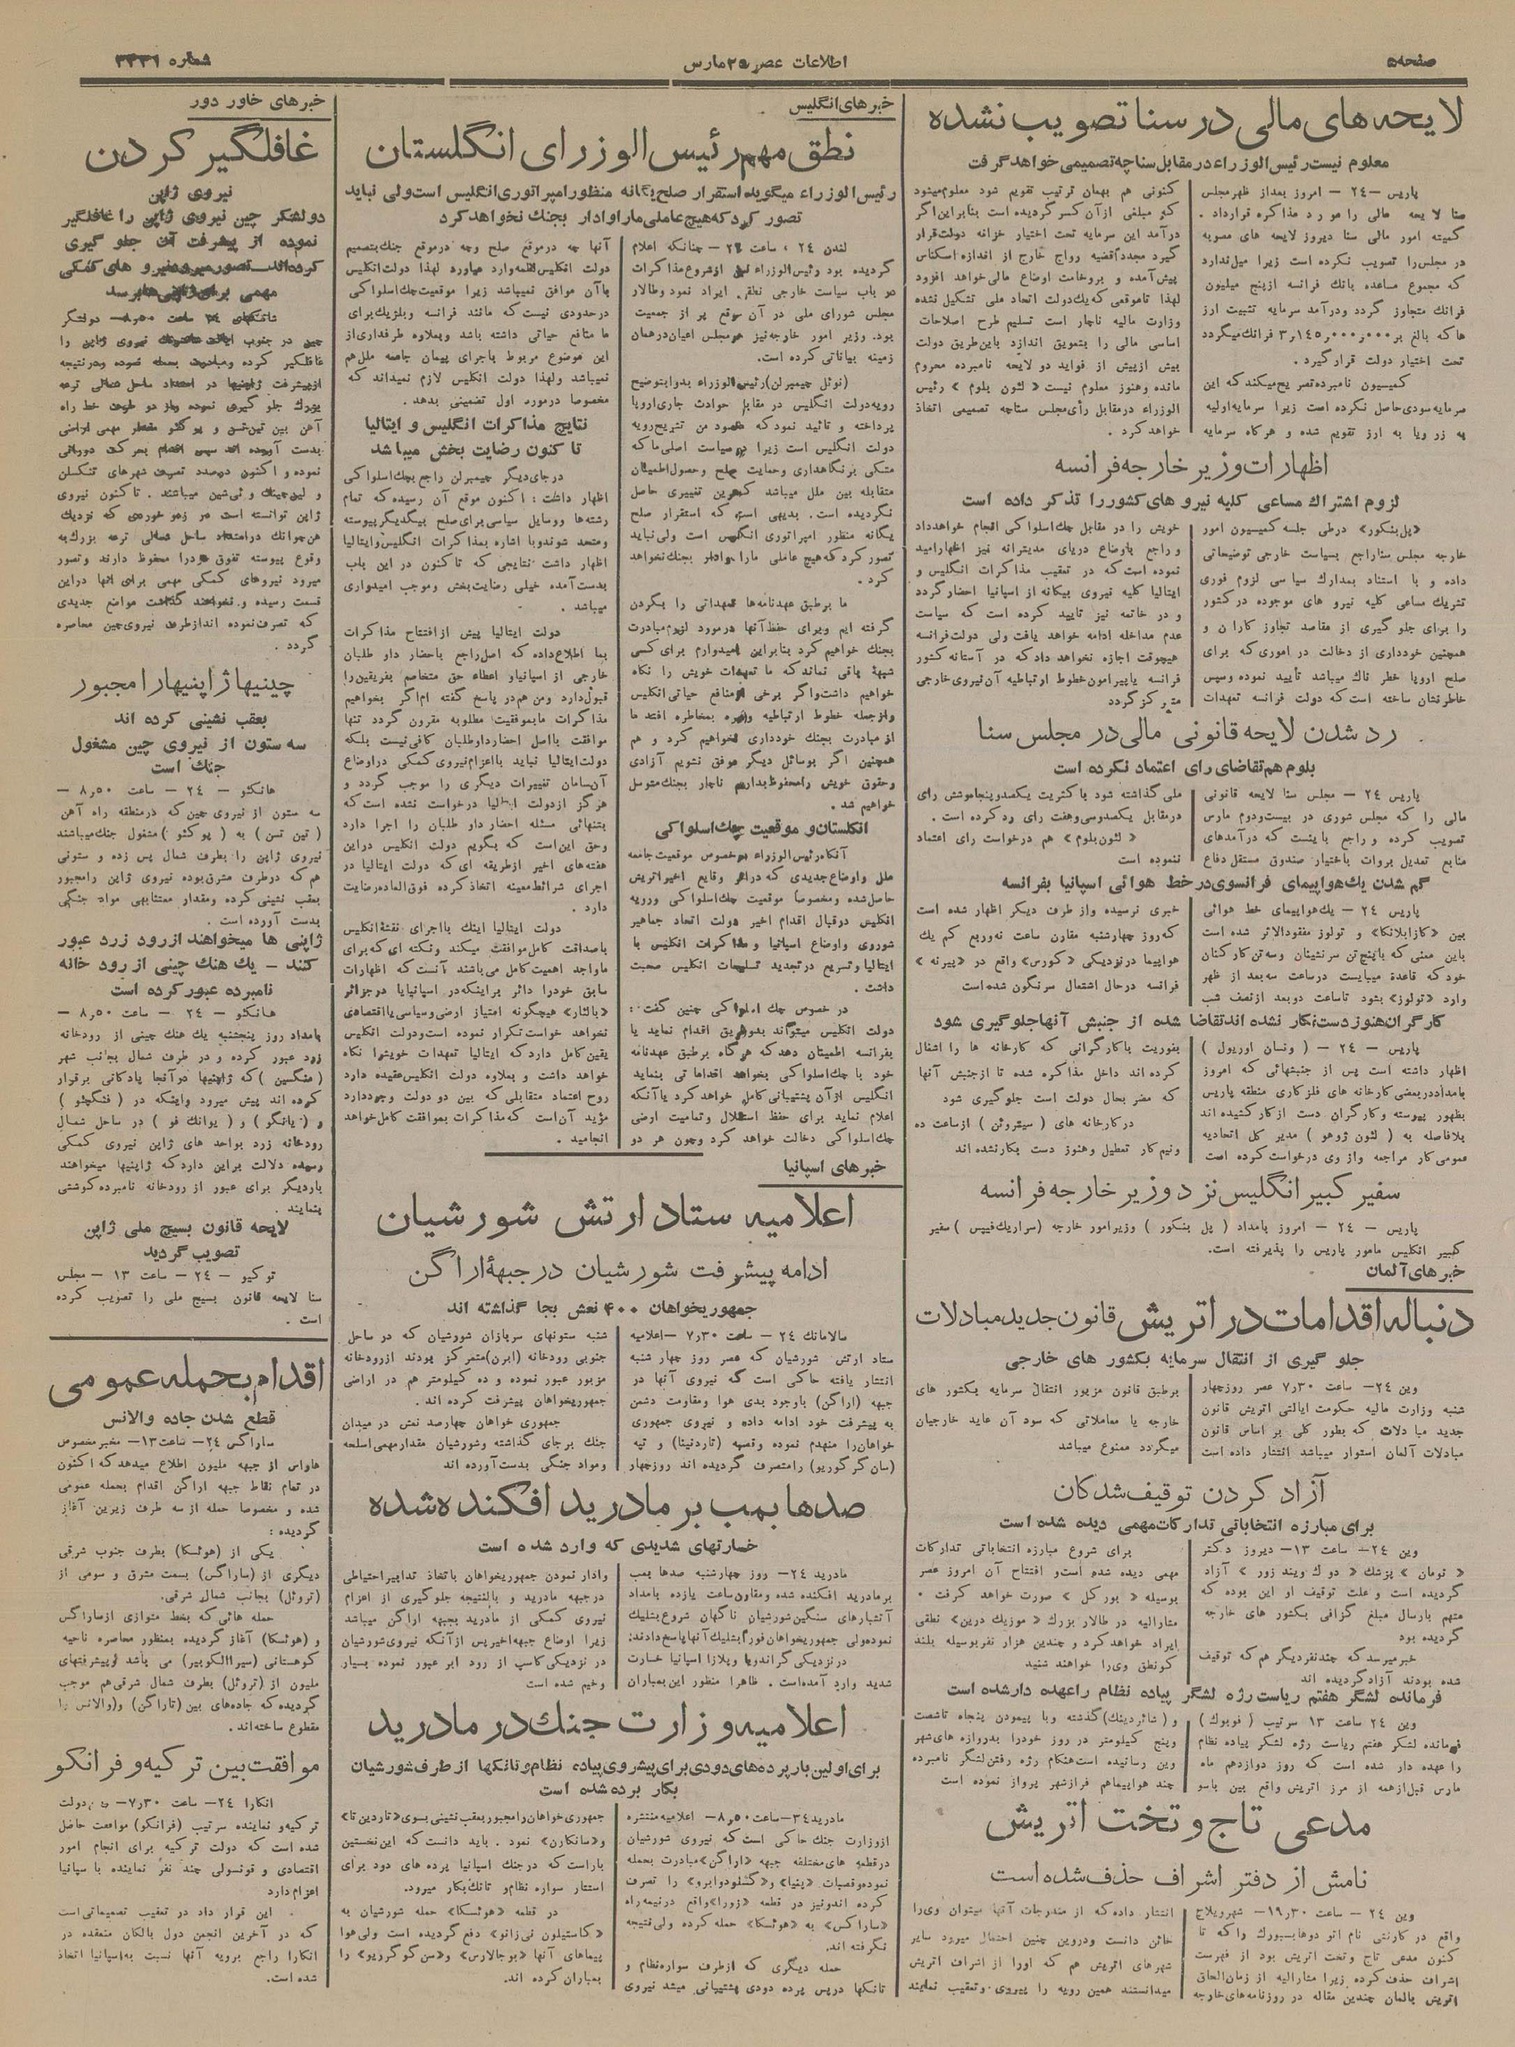 صفحه ۵
اطلاعات عصر ۲۵ مارس
شماره ۳۳۳۶
لایحه های مالی در سنا تصویب نشده
معلوم نیست رئیس الوزراء در مقابل سنا چه تصمیمی خواهد گرفت
پاریس – ۲۴ – امروز بعداز ظهر مجلس
سنا لایحه مالی را مورد مذاکره قرارداد .
کمیته امور مالی سنا دیروز لایحه های مصوبه
در مجلس را تصویب نکرده است زیرا میل ندارد
که مجموع مساعده بانك فرانسه ازپنج میلیون
فرانك متجاوز گردد ودرآمد سرمایه تثبیت ارز
ها که بالغ بر ۳٫۱۴۵٫۰۰۰٫۰۰۰ فرانك میگردد
تحت اختیار دولت قرار گیرد .
کمیسیون نامبرده تصریح میکند که این
سرمایه سودی حاصل نکرده است زیرا سرمایه اولیه
به زر ویا به ارز تقویم شده و هرگاه سرمایه
کنونی هم بهمان ترتیب تقویم شود معلوم میشود
که مبلغی از آن کسر گردیده است بنابراین اگر
درآمد این سرمایه تحت اختیار خزانه دولت قرار
گیرد مجدداً قضیه رواج خارج از اندازه اسکناس
پیش آمده و بروخامت اوضاع مالی خواهد افزود
لهذا تاموقعی که یك دولت اتحاد ملی تشکیل نشده
وزارت مالیه ناچار است تسلیم طرح اصلاحات
اساسی مالی را بتعویق اندازد باین طریق دولت
بیش ازپیش از فواید دو لایحه نامبرده محروم
مانده وهنوز معلوم نیست « لئون بلوم » رئیس
الوزراء درمقابل رأی مجلس سنا چه تصمیمی اتخاذ
خواهد کرد .
اظهارات وزیر خارجه فرانسه
لزوم اشتراك مساعی کلیه نیرو های کشور را تذکر داده است
«پل بنکور» درطی جلسه کمیسیون امور
خارجه مجلس سنا راجع بسیاست خارجی توضیحاتی
داده و با استناد بمدارك سیاسی لزوم فوری
تشریك مساعی کلیه نیرو های موجوده در کشور
را برای جلو گیری از مقاصد تجاوز کاران و
همچنین خودداری از دخالت در اموری که برای
صلح اروپا خطر ناك میباشد تأیید نموده وسپس
خاطرنشان ساخته است که دولت فرانسه تعهدات
خویش را در مقابل چك اسلواکی انجام خواهد داد
و راجع باوضاع دریای مدیترانه نیز اظهار امید
نموده است که در تعقیب مذاکرات انگلیس و
ایتالیا کلیه نیروی بیگانه از اسپانیا احضار گردد
و در خاتمه نیز تایید کرده است که سیاست
عدم مداخله ادامه خواهد یافت ولی دولت فرانسه
هیچوقت اجازه نخواهد داد که در آستانه کشور
فرانسه یا پیرامون خطوط ارتباطیه آن نیروی خارجی
متمرکز گردد
رد شدن لایحه قانونی مالی در مجلس سنا
بلوم هم تقاضای رای اعتماد نکرده است
پاریس ۲۴ – مجلس سنا لایحه قانونی
مالی را که مجلس شوری در بیست ودوم مارس
تصویب کرده و راجع باینست که درآمدهای
منابع تعدیل بروات باختیار صندوق مستقل دفاع
ملی گذاشته شود با کثریت یکصدو پنجاه و شش رای
در مقابل یکصدوسی وهفت رای رد کرده است .
« لئون بلوم » هم درخواست رای اعتماد
ننموده است
گم شدن یك هواپیمای فرانسوی در خط هوائی اسپانیا بفرانسه
پاریس ۲۴ – یك هواپیمای خط هوائی
بین «کازابلانکا» و تولوز مفقودالاثر شده است
باین معنی که با پنج تن سرنشینان وسه تن کارکنان
خود که قاعدة میبایست درساعت سه بعد از ظهر
وارد «تولوز» بشود تا ساعت دو بعد از نصف شب
خبری نرسیده واز طرف دیگر اظهار شده است
که روز چهارشنبه مقارن ساعت نه وربع کم یك
هواپیما درنزدیکی «کورس» واقع در «پیرنه »
فرانسه درحال اشتعال سرنگون شده است
کارگران هنوز دست بکار نشده اند تقاضا شده از جنبش آنها جلوگیری شود
پاریس – ۲۴ – ( ونسان اوریول )
اظهار داشته است پس از جنبشهائی که امروز
بامداد در بعضی کارخانه های فلزکاری منطقه پاریس
بظهور پیوسته وکارگران دست ازکار کشیده اند
بلافاصله به ( لئون ژوهو ) مدیر کل اتحادیه
عمومی کار مراجعه واز وی درخواست کرده است
بفوریت با کارگرانی که کارخانه ها را اشغال
کرده اند داخل مذاکره شده تا ازجنبش آنها
که مضر بحال دولت است جلوگیری شود
درکارخانه های ( سیتروئن ) ازساعت ده
ونیم کار تعطیل وهنوز دست بکار نشده اند
سفیر کبیر انگلیس نزد وزیر خارجه فرانسه
پاریس – ۲۴ – امروز بامداد ( پل بنکور ) وزیر امور خارجه (سراریك فیپس ) سفیر
کبیر انگلیس مامور پاریس را پذیرفته است.
خبرهای آلمان
دنباله اقدامات در اتریش قانون جدید مبادلات
جلو گیری از انتقال سرمایه بکشور های خارجی
وین ۲۴– ساعت ۷٫۳۰ عصر روز چهار
شنبه وزارت مالیه حکومت ایالتی اتریش قانون
جدید مبا دلات که بطور کلی بر اساس قانون
مبادلات آلمان استوار میباشد انتشار داده است
برطبق قانون مزبور انتقال سرمایه بکشور های
خارجه یا معاملاتی که سود آن عاید خارجیان
میگردد ممنوع میباشد
آزاد کردن توقیف شدکان
برای مبارزه انتخاباتی تدارکات مهمی دیده شده است
وین ۲۴– ساعت ۱۳– دیروز دکتر
« تومان » پزشك « دوك ویند زور » آزاد
گردیده است و علت توقیف او این بوده که
متهم بارسال مبلغ گزافی بکشور های خارجه
گردیده بود
خبر میرسد که چند نفر دیگر هم که توقیف
شده بودند آزاد گردیده اند
برای شروع مبارزه انتخاباتی تدارکات
مهمی دیده شده است و افتتاح آن امروز عصر
بوسیله « بور کل » صورت خواهد گرفت .
مشارالیه در طالار بزرك « موزیك درین» نطقی
ایراد خواهد کرد و چندین هزار نفر بوسیله بلند
گو نطق وی را خواهند شنید
فرمانده لشگر هفتم ریاست رژه لشگر پیاده نظام را عهده دار شده است
وین ۲۴ ساعت ۱۳ سرتیپ ( فوبوك )
فرمانده لشکر هفتم ریاست رژه لشکر پیاده نظام
را عهده دار شده است که روز دوازدهم ماه
مارس قبل از همه از مرز اتریش واقع بین پاسو
و (شاردینك) گذشته وبا پیمودن پنجاه تاشصت
وپنج کیلومتر در روز خود را بدروازه های شهر
وین رسانیده است هنکام رژه رفتن لشگر نامبرده
چند هواپیما هم فراز شهر پرواز نموده است
مدعی تاج و تخت اتریش
نامش از دفتر اشراف حذف شده است
وین ۲۴ – ساعت ۱۹٫۳۰– شهر ویلاچ
واقع در کارنتی نام اتو دوهابسبورك را که تا
کنون مدعی تاج وتخت اتریش بود از فهرست
اشراف حذف کرده زیرا مشارالیه از زمان الحاق
اتریش بالمان چندین مقاله در روزنامه های خارجه
انتشار داده که از مندرجات آنها میتوان وی را
خائن دانست ودروین چنین احتمال میرود سایر
شهرهای اتریش هم که اورا از اشراف اتریش
میدانستند همین رویه را پیروی وتعقیب نمایند
خبرهای انگلیس
نطق مهم رئیس الوزرای انگلستان
رئیس الوزراء میگوید استقرار صلح یگانه منظور امپراتوری انگلیس است ولی نباید
تصور کرد که هیچ عاملی مارا وادار بجنك نخواهد کرد
گردیده بود رئیس الوزراء قبل ازشروع مذاکرات
در باب سیاست خارجی نطقی ایراد نمود وطالار
مجلس شورای ملی در آن موقع پر از جمعیت
بود. وزیر امور خارجه نیز درمجلس اعیان درهمان
زمینه بیاناتی کرده است.
(نوئل چیمبرلن) رئیس الوزراء بدوا بتوضیح
رویه دولت انگلیس در مقابل حوادث جاری اروپا
پرداخته و تائید نمود که مقصود من تشریح رویه
دولت انگلیس است زیرا درسیاست اصلی ما که
متکی برنگاهداری وحمایت صلح وحصول اطمینان
متقابله بین ملل میباشد کمترین تغییری حاصل
نگردیده است. بدیهی است که استقرار صلح
یگانه منظور امپراتوری انگلیس است ولی نباید
تصور کرد که هیچ عاملی مارا وادار بجنك نخواهد
کرد .
ما برطبق عهدنامه ها تعهداتی را بگردن
گرفته ایم وبرای حفظ آنها درمورد لزوم مبادرت
بجنك خواهیم کرد بنابراین امیدوارم برای کسی
شبهۀ باقی نماند که ما تعهدات خویش را نگاه
خواهیم داشت واگر برخی از منافع حیاتی انگلیس
وازجمله خطوط ارتباطیه وغیره بمخاطره افتد ما
از مبادرت بجنك خودداری نخواهیم کرد و هم
همچنین اگر بوسائل دیگر موفق نشویم آزادی
وحقوق خویش رامحفوظ بداریم ناچار بجنك متوسل
خواهیم شد .
انگلستان و موقعیت چك اسلواکی
آنگاه رئیس الوزراء درخصوص موقعیت جامعه
ملل واوضاع جدیدی که دراثر وقایع اخیر اتریش
حاصل شده ومخصوصا موقعیت چك اسلواکی ورویه
انگلیس درقبال اقدام اخیر دولت اتحاد جماهیر
شوروی واوضاع اسپانیا ومذاکرات انگلیس با
ایتالیا وتسریع درتجدید تسلیحات انگلیس صحبت
داشت .
در خصوص چك اسلواکی چنین گفت :
دولت انگلیس میتواند بدوطریق اقدام نماید یا
بفرانسه اطمینان دهد که هرگاه برطبق عهدنامه
خود با چك اسلواکی بخواهد اقداماتی بنماید
انگلیس ازآن پشتیبانی کامل خواهد کرد یا آنکه
اعلام نماید برای حفظ استقلال وتمامیت ارضی
چك اسلواکی دخالت خواهد کرد وچون هر دو
آنها چه درموقع صلح وچه درموقع جنك بتصمیم
دولت انگلیس لطمه وارد میاورد لهذا دولت انگلیس
با آن موافق نمیباشد زیرا موقعیت چك اسلواکی
درحدودی نیست که مانند فرانسه وبلژیك برای
ما منافع حیاتی داشته باشد وبعلاوه طرفداری از
این موضوع مربوط باجرای پیمان جامعه ملل هم
نمیباشد ولهذا دولت انگلیس لازم نمیداند که
مخصوصا درمورد اول تضمینی بدهد .
نتایج مذاکرات انگلیس و ایتالیا
تا کنون رضایت بخش میباشد
درجای دیگر چیمبرلن راجع بچك اسلواکی
اظهار داشت : اکنون موقع آن رسیده که تمام
رشته ها ووسایل سیاسی برای صلح بیگدیگر پیوسته
ومتحد شوند وبا اشاره بمذاکرات انگلیس وایتالیا
اظهار داشت نتایجی که تاکنون در این باب
بدست آمده خیلی رضایت بخش وموجب امیدواری
میباشد .
دولت ایتالیا پیش از افتتاح مذاکرات
بما اطلاع داده که اصل راجع باحضار داو طلبان
خارجی از اسپانیا و اعطاء حق متخاصم بفریقین را
قبول دارد ومن هم در پاسخ گفته ام اگر بخواهیم
مذاکرات ما بموفقیت مطلوبه مقرون گردد تنها
موافقت بااصل احضار داوطلبان کافی نیست بلکه
دولت ایتالیا نباید با اعزام نیروی کمکی دراوضاع
آن سامان تغییرات دیگری را موجب گردد و
هرگز ازدولت ایتالیا درخواست نشده است که
بتنهائی مسئله احضار داو طلبان را اجرا دارد
وحق این است که بگویم دولت انگلیس دراین
هفته های اخیر ازطریقه ای که دولت ایتالیا در
اجرای شرائط معینه اتخاذ کرده فوق العاده رضایت
دارد .
دولت ایتالیا اینك بااجرای نقشۀ انگلیس
باصداقت کامل موافقت میکند ونکته ای که برای
ما واجد اهمیت کامل می باشد آنست که اظهارات
سابق خود را دائر براینکه در اسپانیا یا در جزائر
«بالئار» هیچگونه امتیاز ارضی وسیاسی یا اقتصادی
نخواهد خواست تکرار نموده است ودولت انگلیس
یقین کامل دارد که ایتالیا تعهدات خویش را نگاه
خواهد داشت و بعلاوه دولت انگلیس عقیده دارد
روح اعتماد متقابلی که بین دو دولت وجود دارد
مؤید آن است که مذاکرات بموافقت کامل خواهد
انجامید .
خبرهای اسپانیا
اعلامیه ستاد ارتش شورشیان
ادامه پیشرفت شورشیان در جبهۀ اراگن
جمهوریخواهان ۴۰۰ نعش بجا گذاشته اند
سالامانك ۲۴ – ساعت ۷٫۳۰ – اعلامیه
ستاد ارتش شورشیان که عصر روز چهار شنبه
انتشار یافته حاکی است که نیروی آنها در
جبهه (اراگن) باوجود بدی هوا ومقاومت دشمن
به پیشرفت خود ادامه داده و نیروی جمهوری
خواهان را منهدم نموده وقصبه (تاردئینا) و تپه
(سان گرگوریو) را متصرف گردیده اند روز چهار
شنبه ستونهای سربازان شورشیان که در ساحل
جنوبی رودخانه (ابرن) متمرکز بودند از رودخانه
مزبور عبور نموده و ده کیلومتر هم در اراضی
جمهوریخواهان پیشرفت کرده اند .
جمهوری خواهان چهارصد نعش در میدان
جنك برجای گذاشته وشورشیان مقدار مهمی اسلحه
ومواد جنگی بدست آورده اند
صدها بمب بر مادرید افکنده شده
خسارتهای شدیدی که وارد شده است
مادرید ۲۴– روز چهارشنبه صدها بمب
برمادرید افکنده شده ومقارن ساعت یازده بامداد
آتشبارهای سنگین شورشیان ناگهان شروع بشلیك
نموده ولی جمهوریخواهان فوراً بشلیك آنها پاسخ دادند؛
درنزدیکی گراندویا وپلازا اسپانیا خسارت
شدید وارد آمده است. ظاهرا منظور این بمباران
وادار نمودن جمهوریخواهان باتخاذ تدابیر احتیاطی
درجبهه مادرید و بالنتیجه جلوگیری از اعزام
نیروی کمکی از مادرید بجبهه اراگن میباشد
زیرا اوضاع جبهه اخیر پس ازآنکه نیروی شورشیان
در نزدیکی کاسپ از رود ابر عبور نموده بسیار
وخیم شده است
اعلامیه وزارت جنك در مادرید
برای اولین بار پرده های دودی برای پیشروی پیاده نظام و تانکها از طرف شورشیان
بکار برده شده است
مادرید ۲۴– ساعت ۸٫۵۰– اعلامیه منتشره
ازوزارت جنك حاکی است که نیروی شورشیان
در قطعه های مختلفه جبهه «اراگن» مبادرت بحمله
کرده اندو نیز در قطعه «زورا» واقع درنیمه راه
«ساراگس» به «هوئسکا» حمله کرده ولی نتیجه
نگرفته اند.
حمله دیگری که ازطرف سواره نظام و
تانکها درپس پرده دودی پشتیبانی میشد نیروی
جمهوری خواهان را مجبور بعقب نشینی بسوی «تاردین تا»
و «سانکارن» نمود . باید دانست که این نخستین
بار است که در جنك اسپانیا پرده های دود برای
استتار سواره نظام و تانك بکار میرود.
در قطعه «هوئسکا» حمله شورشیان به
«کاستیلون نی زانو» دفع گردیده است ولی هوا
پیماهای آنها «بوجالارس» و «سن گوگزیو» را
بمباران کرده اند.
خبرهای خاور دور
غافلگیر کردن
نیروی ژاپن
دولشگر چین نیروی ژاپن را غافلگیر
نموده از پیشرفت آن جلو گیری
کرده اند – تصور میرود نیرو های کمکی
مهمی برای ژاپنی ها برسد
غافلگیر کرده ومبادرت بحمله نموده ودرنتیجه
ازپیشرفت ژاپنیها در امتداد ساحل شمالی ترعه
بزرك جلو گیری نموده وباز دو طرف خط راه
بدست آورده اند سپس اقدام بحرکت دورانی
نموده و اکنون درصدد تصرف شهرهای تنکسلن
و لین چینك و ئی شین میباشند . تاکنون نیروی
ژاپن توانسته است هر زدو خوردی که نزدیك
هن جوانك درامتداد ساحل شمالی ترعه بزرك به
وقوع پیوسته تفوق خودرا محفوظ دارند وتصور
میرود نیروهای کمکی مهمی برای آنها دراین
قسمت رسیده و نخواهند گذاشت مواضع جدیدی
که تصرف نموده اند از طرف نیروی چین محاصره
گردد .
چینیها ژاپنیها را مجبور
بعقب نشینی کرده اند
سه ستون از نیروی چین مشغول
جنك است
هانکئو – ۲۴ – ساعت ۸٫۵۰ –
سه ستون از نیروی چین که درمنطقه راه آهن
( تین تسن ) به ( پوکئو ) مشغول جنك میباشند
نیروی ژاپن را بطرف شمال پس زده و ستونی
هم که درطرف مشرق بوده نیروی ژاپن را مجبور
بعقب نشینی کرده ومقدار معتنابهی مواد جنگی
بدست آورده است .
ژاپنی ها میخواهند از رود زرد عبور
کنند – یك هنك چینی از رود خانه
نامبرده عبور کرده است
هانکئو – ۲۴ – ساعت ۸٫۵۰ –
بامداد روز پنجشنبه یك هنك چینی از رودخانه
زرد عبور کرده و در طرف شمال بجانب شهر
( منگسین ) که ژاپنیها درآنجا پادگانی برقرار
کرده اند پیش میرود واینکه در ( فنگچئو )
و ( یانگو ) و ( یوانك فو ) در ساحل شمال
رودخانه زرد بواحد های ژاپن نیروی کمکی
رسیده دلالت براین دارد که ژاپنیها میخواهند
باردیگر برای عبور از رودخانه نامبرده کوششی
بنمایند .
لایحه قانون بسیج ملی ژاپن
تصویب گردید
توکیو – ۲۴ – ساعت ۱۳ – مجلس
سنا لایحه قانون بسیج ملی را تصویب کرده
است .
اقدام بحمله عمومی
قطع شدن جاده والانس
ساراگس ۲۴– ساعت ۱۳– مخبر مخصوص
هاواس از جبهه ملیون اطلاع میدهد که اکنون
در تمام نقاط جبهه اراگن اقدام بحمله عمومی
شده و مخصوصا حمله از سه طرف زیرین آغاز
گردیده :
یکی از (هوئسکا) بطرف جنوب شرقی
دیگری از (ساراگس) بسمت مشرق و سومی از
(تروئل) بجانب شمال شرقی.
حمله هائی که بخط متوازی از ساراگس
و (هوئسکا) آغاز گردیده بمنظور محاصره ناحیه
کوهستانی (سیرا الکوبیر) می باشد و پیشرفتهای
ملیون از (تروئل) بطرف شمال شرقی هم موجب
گردیده که جاده های بین (تاراگن) و (والانس) را
مقطوع ساخته اند .
موافقت بین ترکیه و فرانکو
انکارا ۲۴– ساعت ۷٫۳۰– بین دولت
ترکیه و نماینده سرتیپ (فرانکو) موافقت حاصل
شده است که دولت ترکیه برای انجام امور
اقتصادی و قونسولی چند نفر نماینده با سپانیا
اعزام دارد
این قرار داد در تعقیب تصمیماتی است
که در آخرین انجمن دول بالکان منعقده در
انکارا راجع برویه آنها نسبت به اسپانیا اتخاذ
شده است.